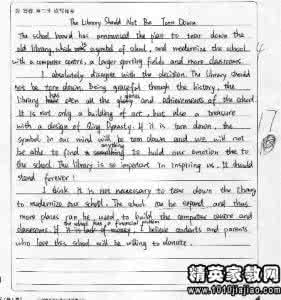 The Library Should Not Be Torn Down
The school board has announced the plan to tear down the
old library, which a symbol of school, and modernize the school
with a computer centre, a larger sporting fields and more classrooms.
I absolutely disagree with the decision. The library should
not be torn down, being graceful through the history, the
library has seen all the glories and achievements of the school.
It is not only a building of art, but also a treasure
with a design of Dynasty. If it is torn down, the
symbol in our mind will be torn down and we will not
be able to find something to hold our emotion due to
the school. The library is so important in inspiring us. It should
stand forever!
I think it is not necessary to tear down the library
to modernize our school. The school can be expand, and thus
more places can be used to build the computer centre and
classrooms. If the school has a financial problem it is lack of money, I believe students and parents
who love this school will be willing to donate.
精英家教网
www.1010jiajiao.com